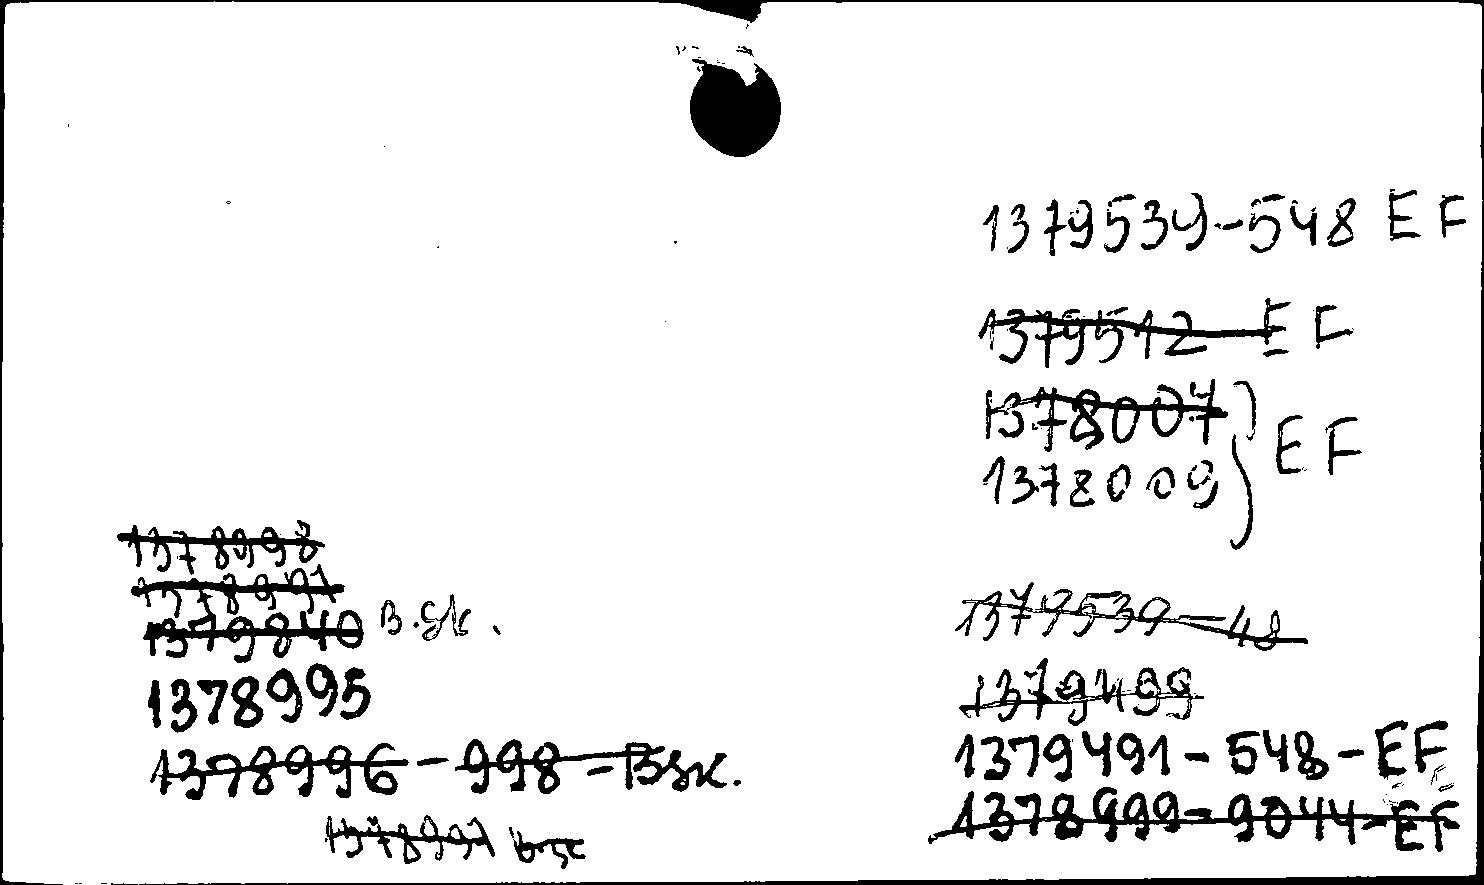 1379539-548 EF
1379512 EF
1378007
1378009 } EF
1378998
1378991
1379840 B.Sk.
1378995
1378996-998-BSK.
1378997
1379539-48
1379499
1379491-548-EF
1378999-9044-EF